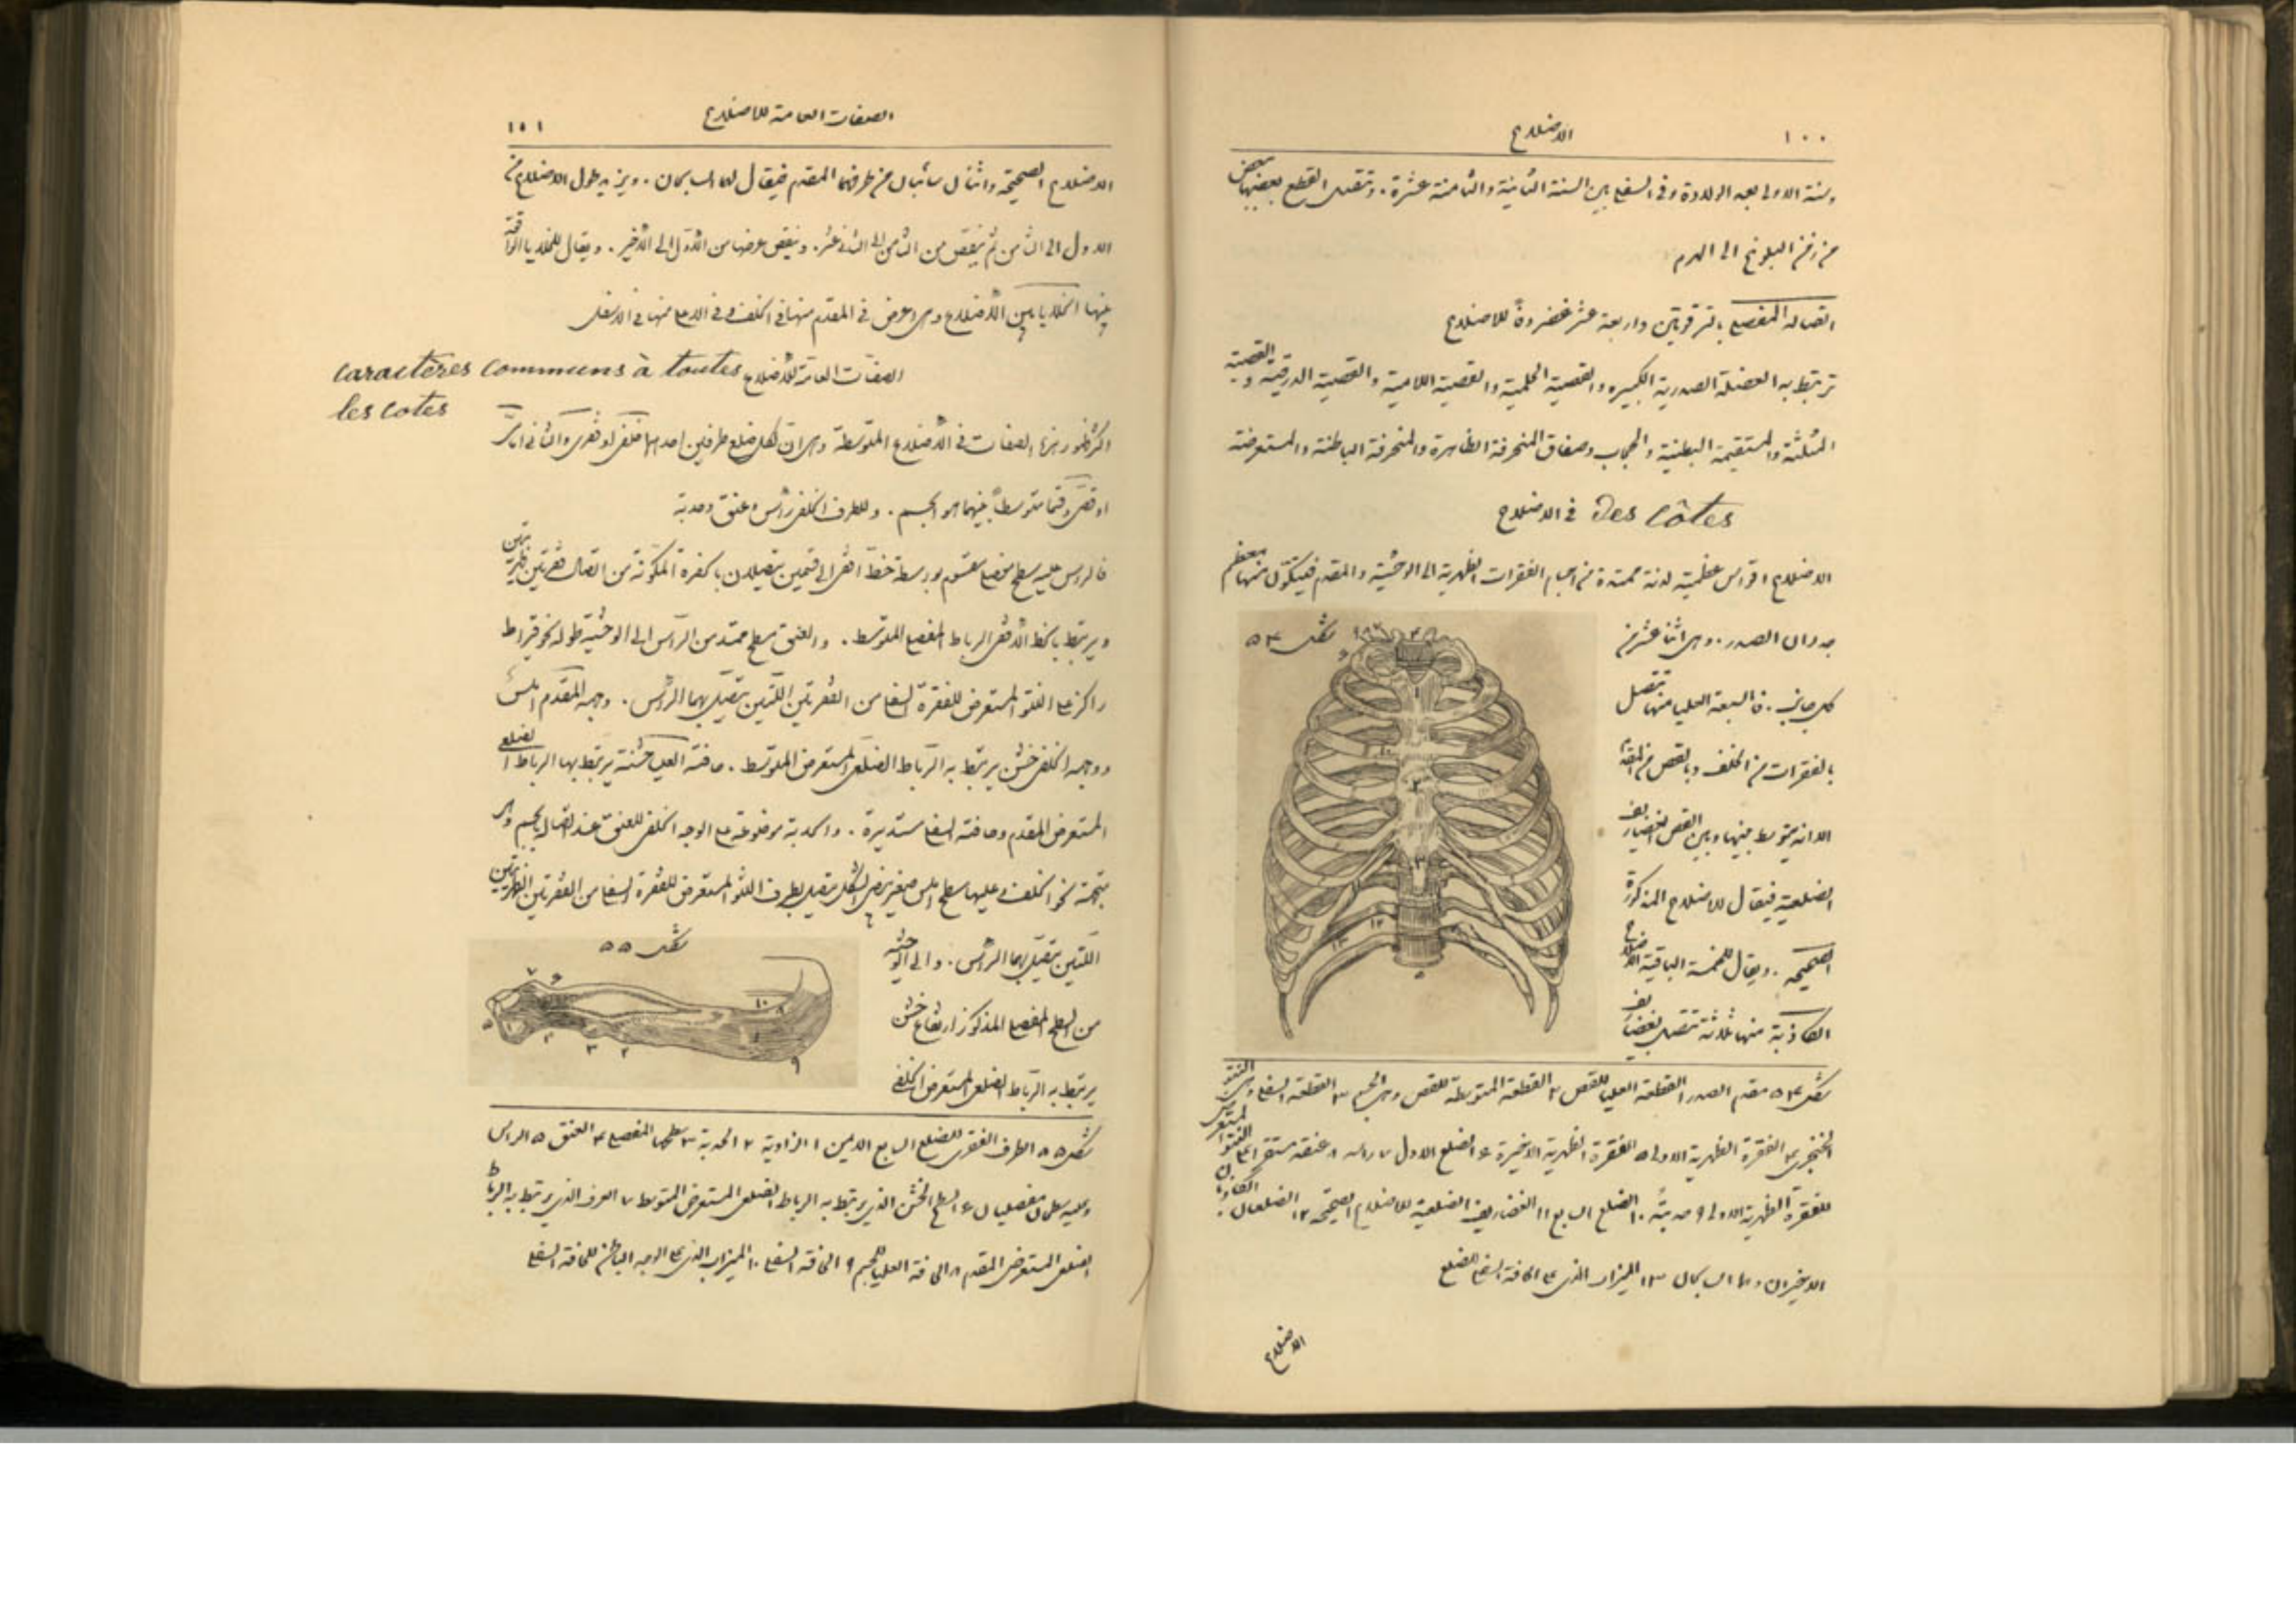 ١٠٠
الاضلاع
وسنة الاولى بعد الولادة وفى السفلى بين السنة الثانية والثامنة عشرة. وتتصل القطع بعضها ببعض
من زمن البلوغ الى الهرم
اتصاله المفصلى بالترقوتين واربعة عشر غضروفًا للاضلاع
ترتبط به العضلة الصدرية الكبيرة والقصية الحلمية والقصية اللامية والقصية الدرقية والقصية
المثلثة والمستقيمة البطنية والحجاب وصفاق المنحرفة الظاهرة والمنحرفة الباطنة والمستعرضة
Des Côtes فى الاضلاع
الاضلاع اقواس عظمية لدنة ممتدة من اجسام الفقرات الظهرية الى الوحشية والمقدم فيتكوّن منها معظم
جدران الصدر. وهى اثنا عشر من
شكل ٥٤
كل جانب. فالسبعة العليا منها تتصل
بالفقرات من الخلف وبالقص من المقدم
الا انه يتوسط بينها وبين القص الغضاريف
الضلعية فيقال للاضلاع المذكورة
الصحيحة. ويقال للخمسة الباقية الاضلاع
الكاذبة منها ثلاثة تتصل بغضاريف
شكل ٥٤ مقدم الصدر ١ القطعة العليا للقص ٢ القطعة المتوسطة للقص وهى الجسم ٣ القطعة السفلى وهى النتو
الخنجرى ٤ الفقرة الظهرية الاولى ٥ الفقرة الظهرية الاخيرة ٦ الضلع الاول ٧ راسه ٨ عنقه مستقر على النتو المستعرض
للفقرة الظهرية الاولى ٩ حدبته ١٠ الضلع السابع ١١ الغضاريف الضلعية للاضلاع الصحيحة ١٢ الضلعان الكاذبان
الاخيران وهما السابحان ١٣ الميزاب الذى على الحافة السفلى للضلع
الاضلاع
١٠١
الصفات العامة للاضلاع
الاضلاع الصحيحة واثنان سائبان من طرفهما المقدم فيقال لهما السابحان. ويزيد طول الاضلاع من
الاول الى الثامن ثم ينقص من الثامن الى الثانى عشر. وينقص عرضها من الاول الى الاخير. ويقال للخلايا الواقعة
بينها الخلايا بين الاضلاع وهى اعرض فى المقدم منها فى الخلف وفى الاعلى منها فى الاسفل
الصفات العامة للاضلاع caractères communs à toutes
les cotes
اكثر ظهور هذه الصفات فى الاضلاع المتوسطة وهى ان لكل ضلع طرفين احدهما خلفى او فقرى والثانى امامى
او قصى وقسما متوسطا بينهما هو الجسم. وللطرف الخلفى رأس وعنق وحدبة
فالراس عليه سطح مفصلى مقسوم بواسطة خط افقى الى قسمين يتصلان بالحفرة المكونة من اتصال فقرتين ظهريتين
ويرتبط بالخط الافقى الرباط المفصلى المتوسط. والعنق مسطح ممتد من الرأس الى الوحشية طوله نحو قيراط
راكز على النتو المستعرض للفقرة السفلى من الفقرتين اللتين يتصل بهما الرأس. وجهه المقدم املس
ووجهه الخلفى خشن يرتبط به الرباط الضلعى المستعرض المتوسط. حافته العليا خشنة يرتبط بها الرباط الضلعى
المستعرض المقدم وحافته السفلى مستديرة. والحدبة موضوعة على الوجه الخلفى للعنق عند اتصاله بالجسم وهى
متجهة نحو الخلف وعليها سطح املس صغير بيضى الشكل يتصل بطرف النتو المستعرض للفقرة السفلى من الفقرتين الظهريتين
شكل ٥٥
اللتين يتصل بهما الرأس. والى الوحشية
من السطح المفصلى المذكور ارتفاع خشن
يرتبط به الرباط الضلعى المستعرض الخلفى
شكل ٥٥ الطرف الفقرى للضلع السابع الايمن ١ الزاوية ٢ الحدبة ٣ سطحها المفصلى ٤ العنق ٥ الراس
وعليه سطحان مفصليان ٦ السطح الخشن الذى يرتبط به الرباط الضلعى المستعرض المتوسط ٧ الحرف الذى يرتبط به الرباط
الضلعى المستعرض المقدم ٨ الحافة العليا للجسم ٩ الحافة السفلى ١٠ الميزاب الذى على الوجه الباطن للحافة السفلى